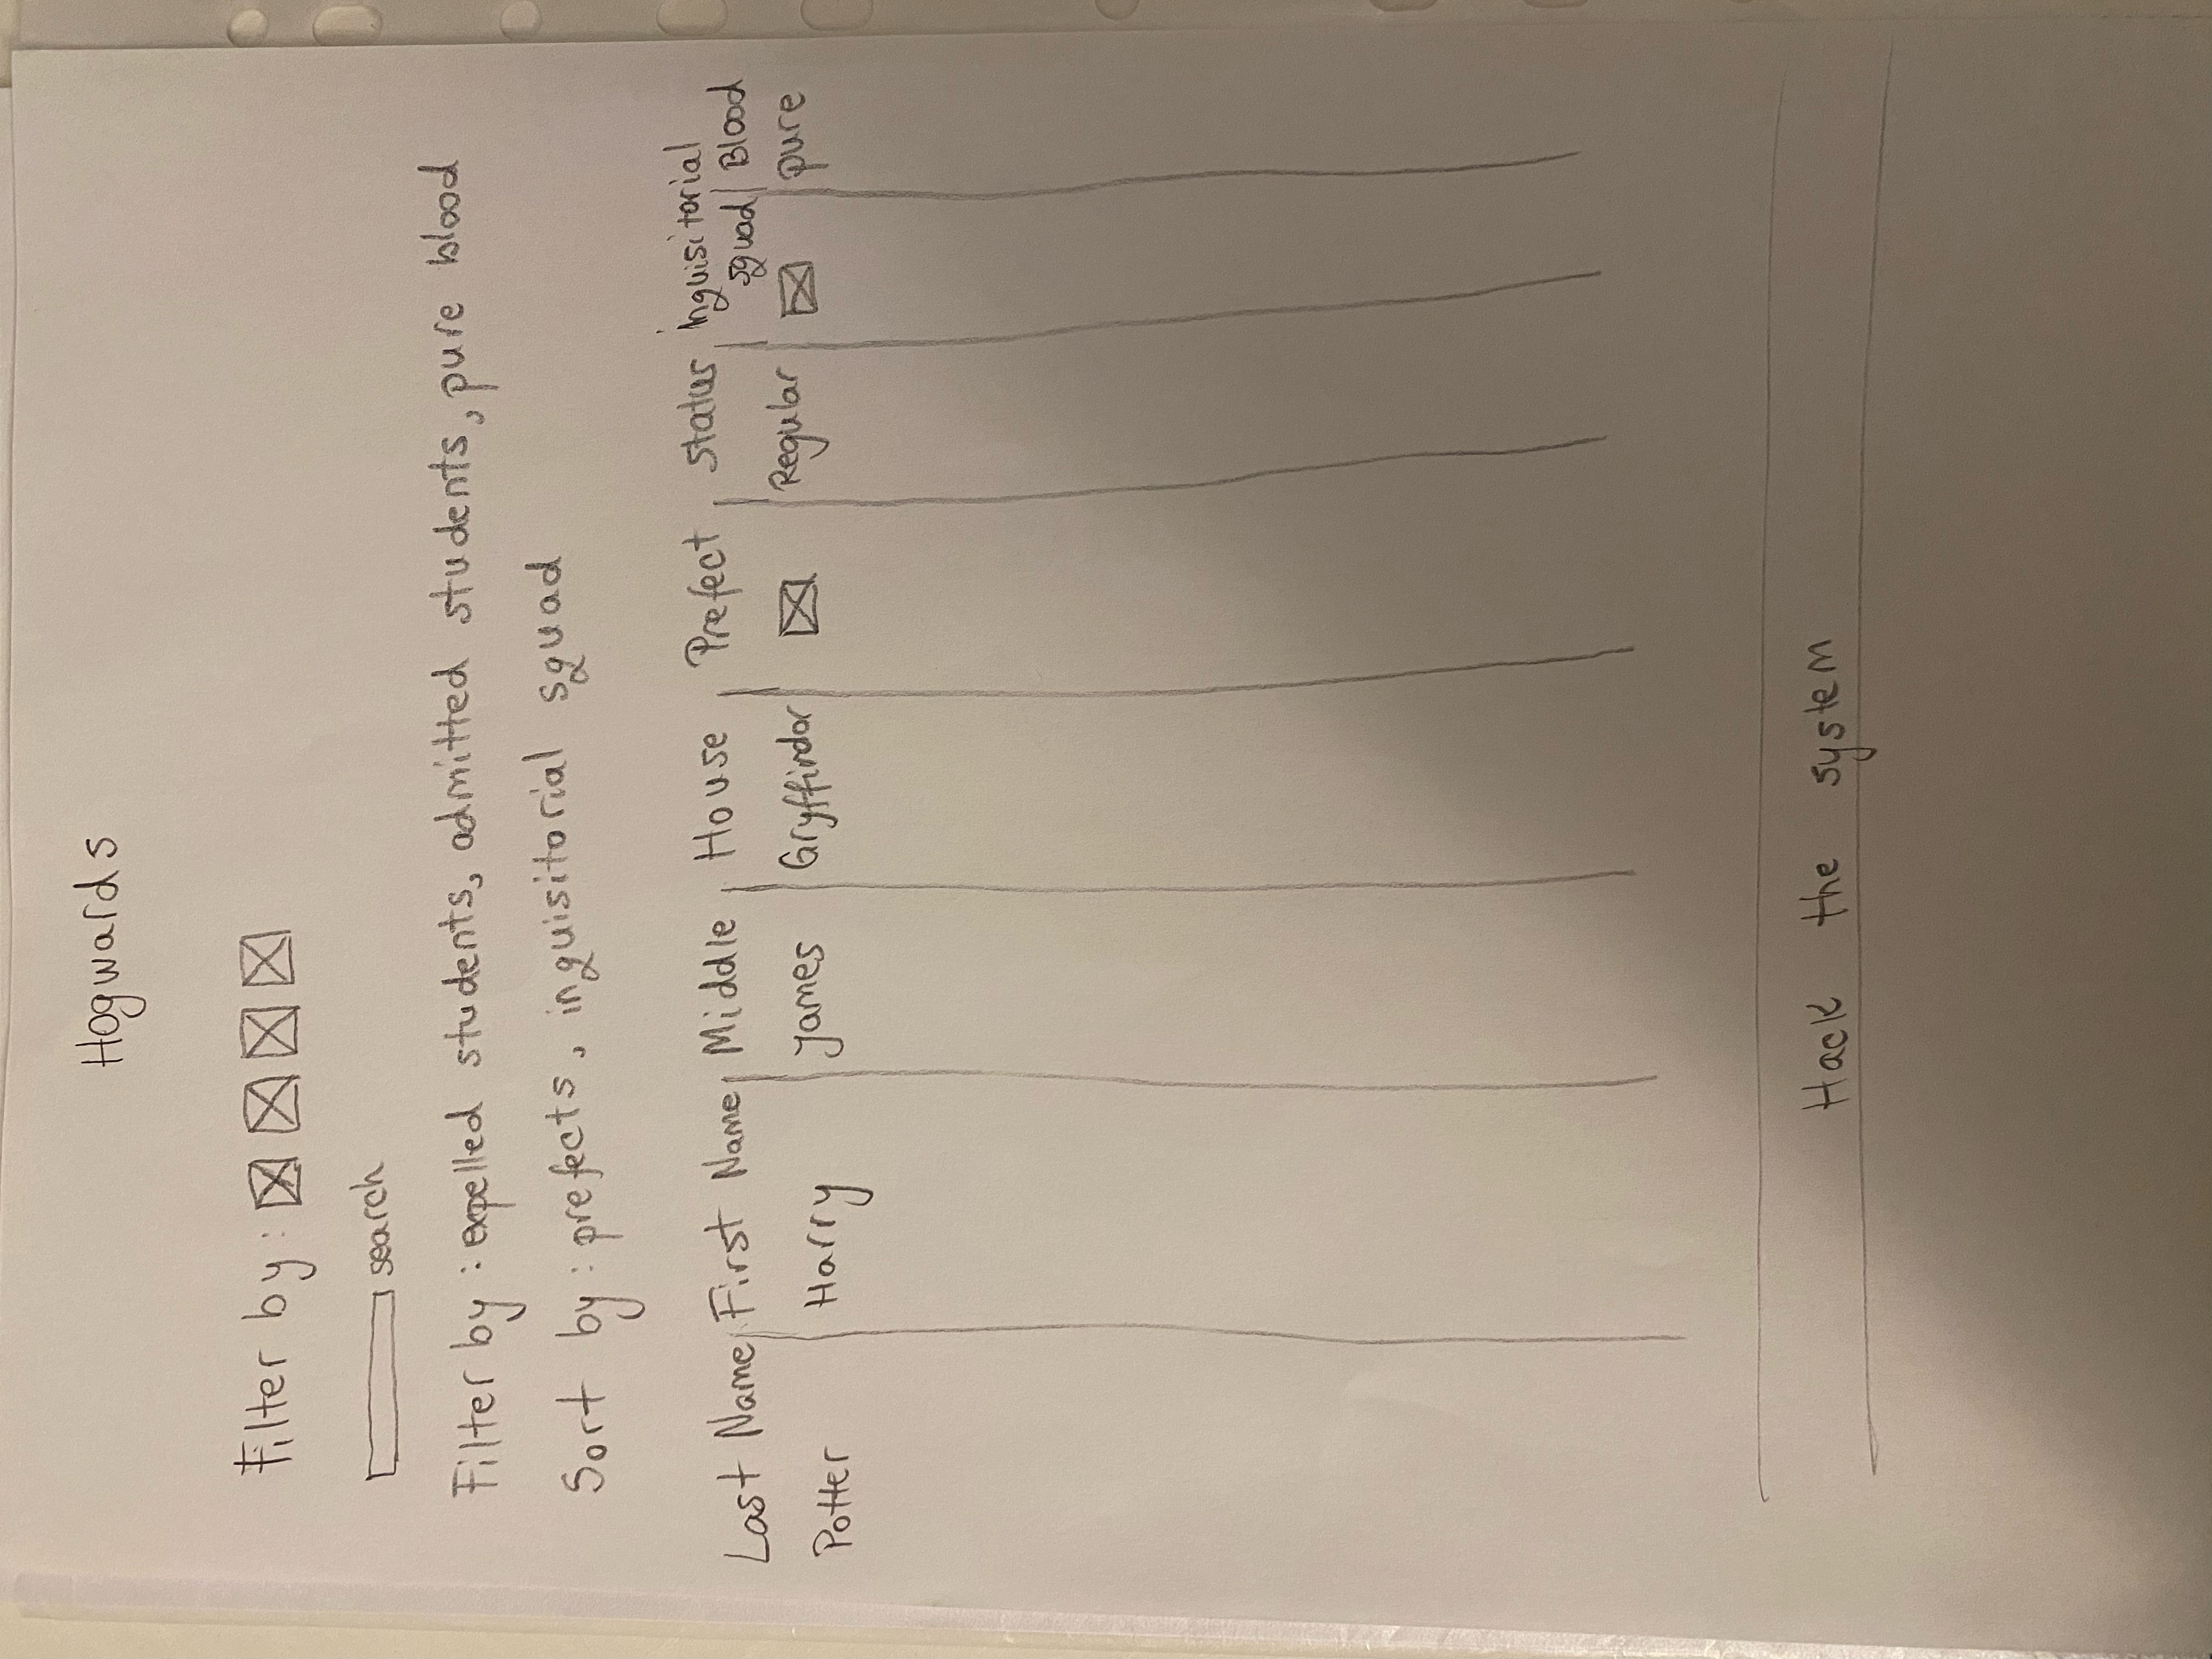 Hogwards
Filter by:
search
Filter by: expelled students, admitted students, pure blood
Sort by: prefects, inquisitorial squad
Last Name First Name Middle House Prefect Status Inquisitorial squad Blood
Potter Harry James Gryffindor Regular pure
Hack the system